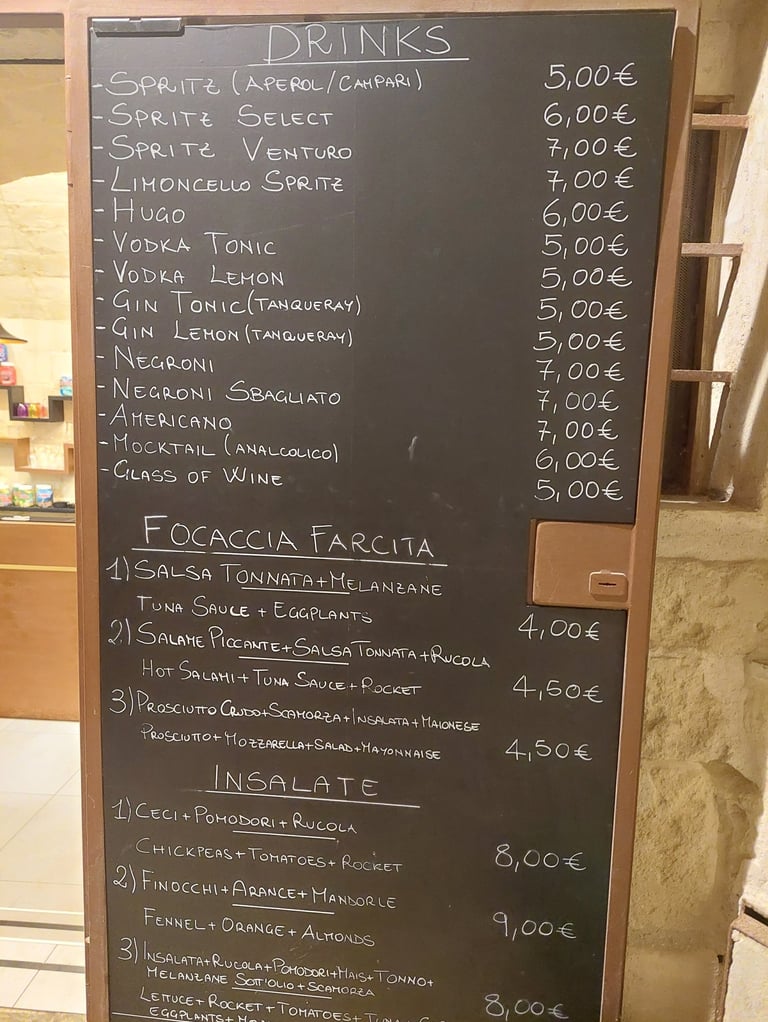 DRINKS
- SPRITZ (APEROL/CAMPARI) 5,00€
- SPRITZ SELECT 6,00€
- SPRITZ VENTURO 7,00€
- LIMONCELLO SPRITZ 7,00€
- HUGO 6,00€
- VODKA TONIC 5,00€
- VODKA LEMON 5,00€
- GIN TONIC (TANQUERAY) 5,00€
- GIN LEMON (TANQUERAY) 5,00€
- NEGRONI 7,00€
- NEGRONI SBAGLIATO 7,00€
- AMERICANO 7,00€
- MOCKTAIL (ANALCOLICO) 6,00€
- GLASS OF WINE 5,00€
FOCACCIA FARCITA
1) SALSA TONNATA + MELANZANE
TUNA SAUCE + EGGPLANTS 4,00€
2) SALAME PICCANTE + SALSA TONNATA + RUCOLA
HOT SALAMI + TUNA SAUCE + ROCKET 4,50€
3) PROSCIUTTO CRUDO + SCAMORZA + INSALATA + MAIONESE
PROSCIUTTO + MOZZARELLA + SALAD + MAYONNAISE 4,50€
INSALATE
1) CECI + POMODORI + RUCOLA
CHICKPEAS + TOMATOES + ROCKET 8,00€
2) FINOCCHI + ARANCE + MANDORLE
FENNEL + ORANGE + ALMONDS 9,00€
3) INSALATA + RUCOLA + POMODORI + MAIS + TONNO +
MELANZANE SOTT'OLIO + SCAMORZA
LETTUCE + ROCKET + TOMATOES + TUNA + 8,00€
EGGPLANTS +